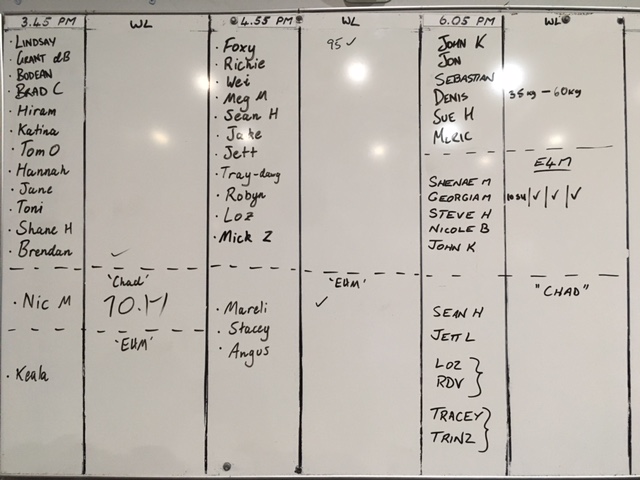 3.45 PM
WL
LINDSAY
GRANT dB
BODEAN
BRAD C
Hiram
Katina
Tom O
Hannah
June
Toni
Shane H
Brendan ✓
"Chad"
Nic M
"E4M"
Keala
4.55 PM
WL
Foxy 95 ✓
Richie
Wei
Meg M
Sean H
Jake
Jett
Tray-dawg
Robyn
Loz
Mick Z
"E4M"
Mareli ✓
Stacey
Angus
6.05 PM
WL
JOHN K
JON
SEBASTIAN
DENIS 35kg - 60kg
SUE H
MERIC
E4M
SHENAE M
GEORGIA M | ✓ | ✓ | ✓
STEVE H
NICOLE B
JOHN K
"CHAD"
SEAN H
JETT L
LOZ
RDV
TRACEY
TRINZ